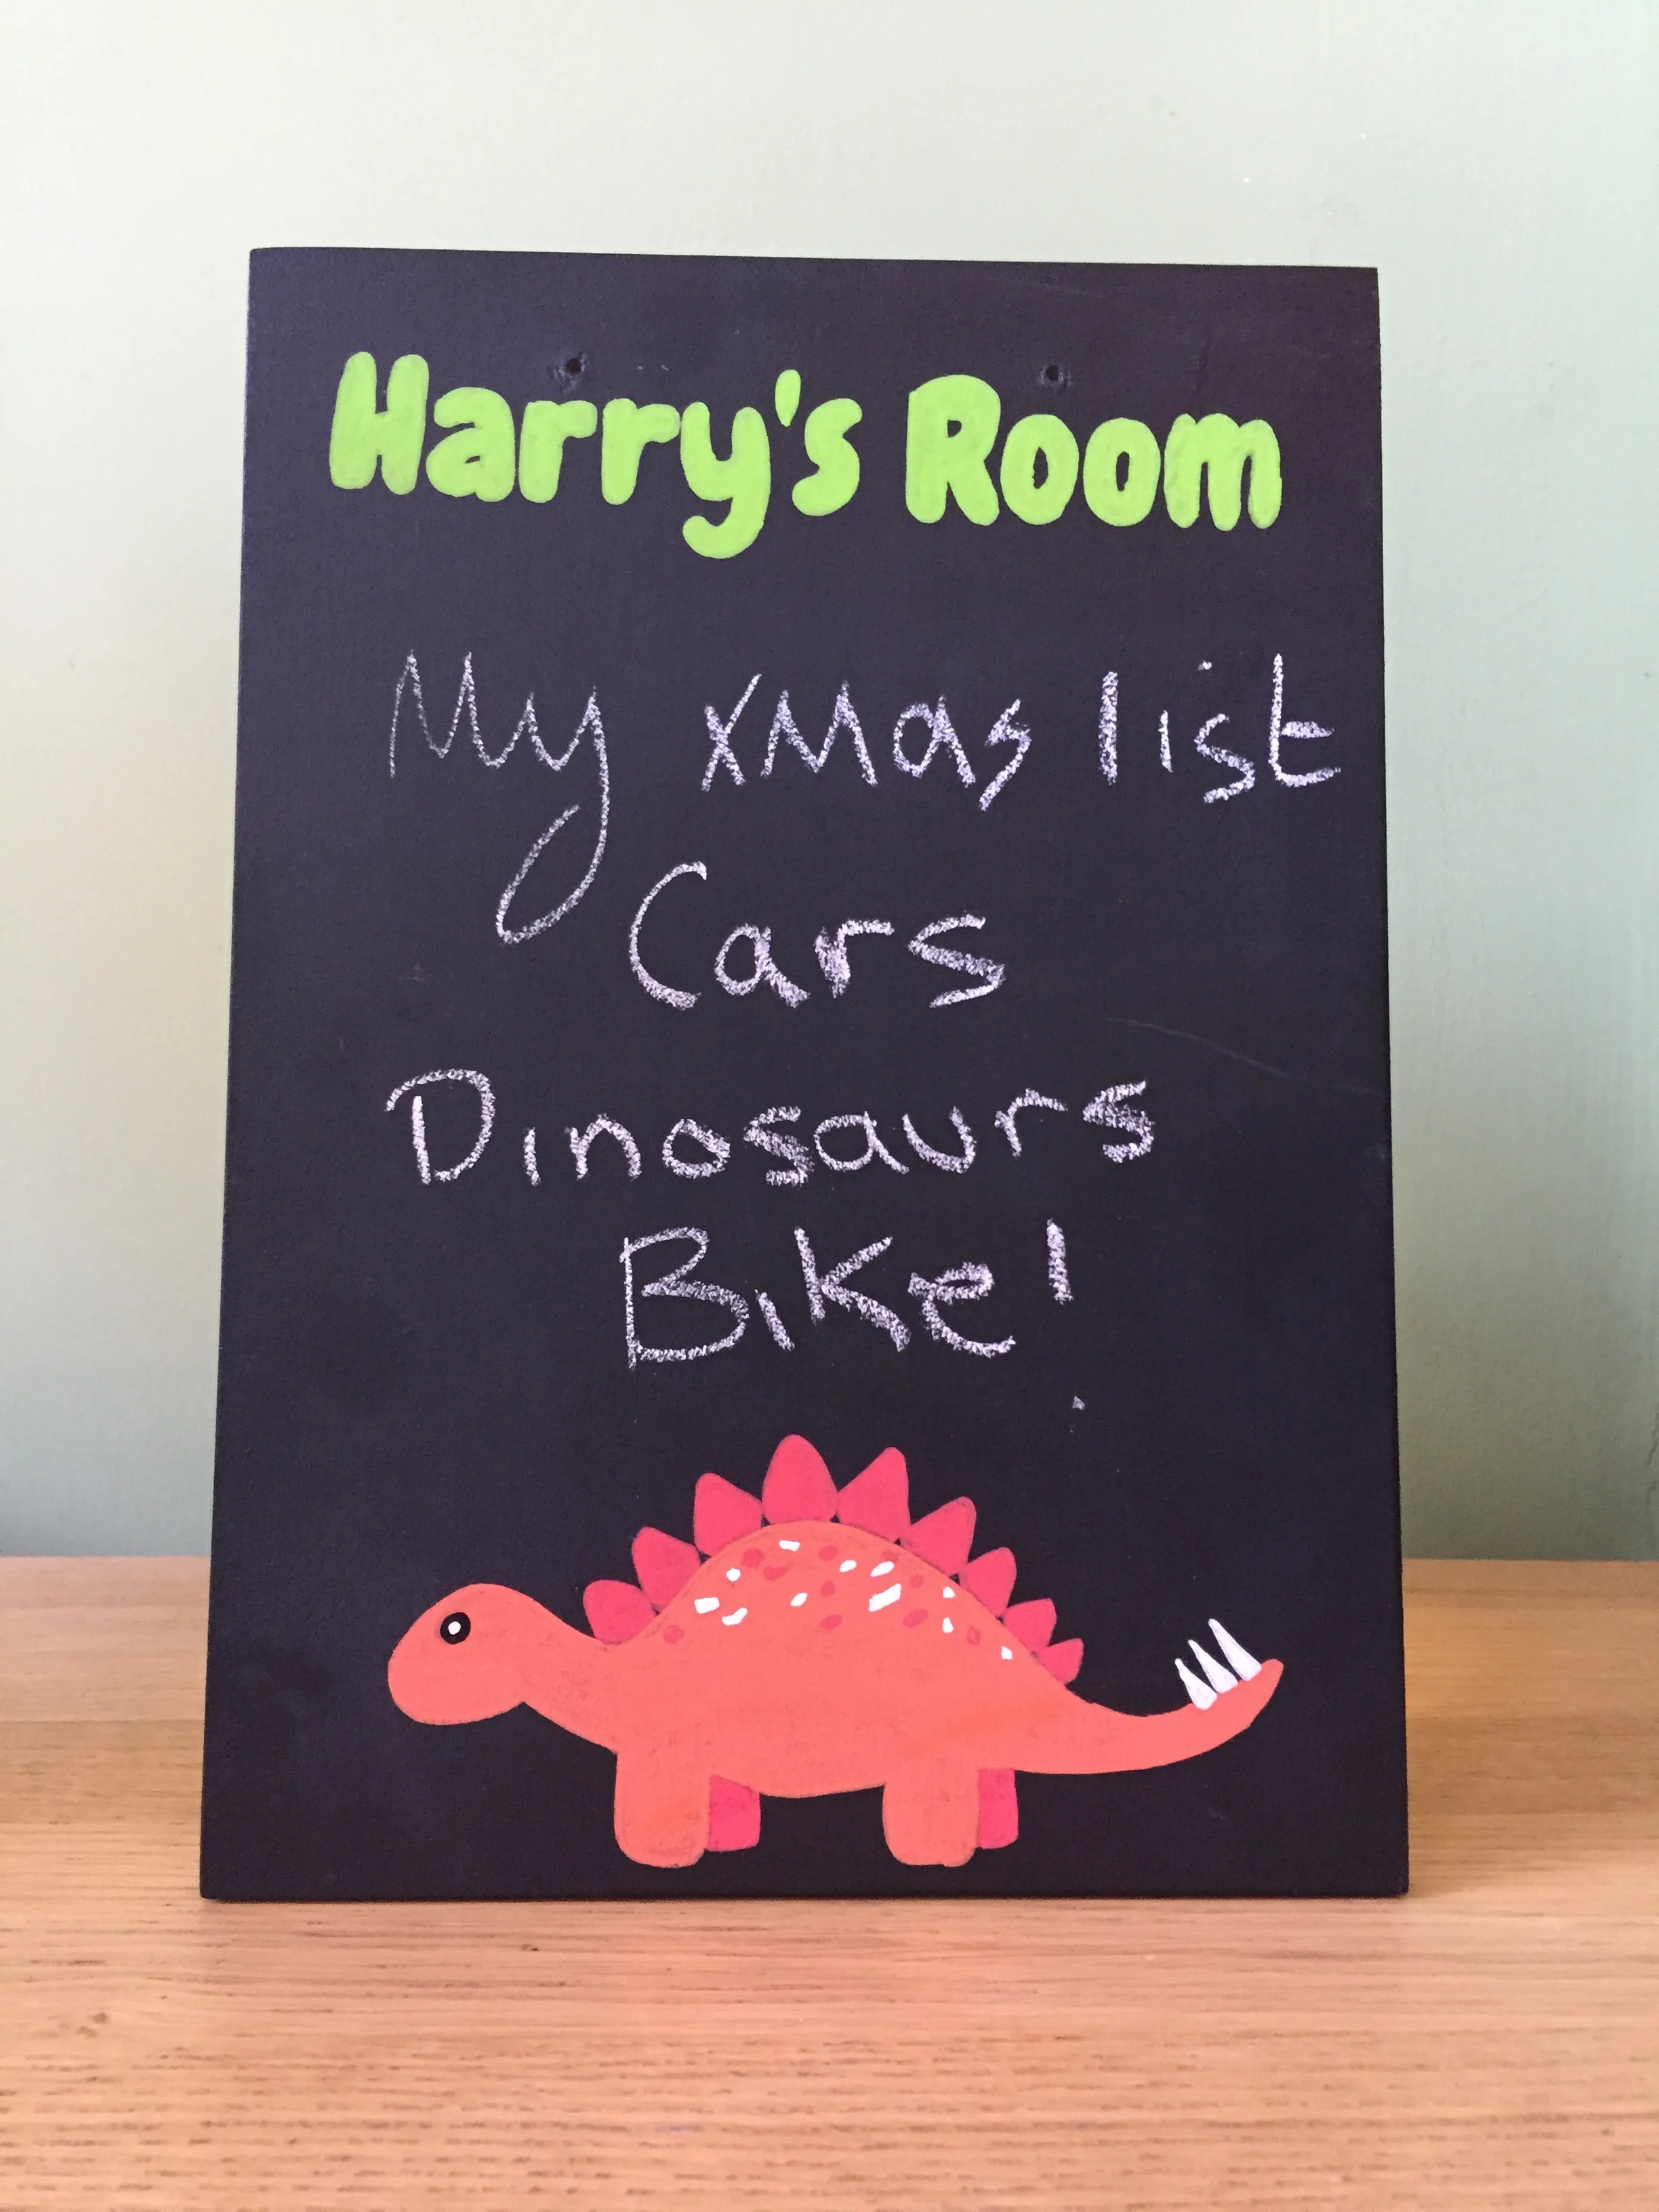 Harry's Room
My xmas list
Cars
Dinosaurs
Bike!